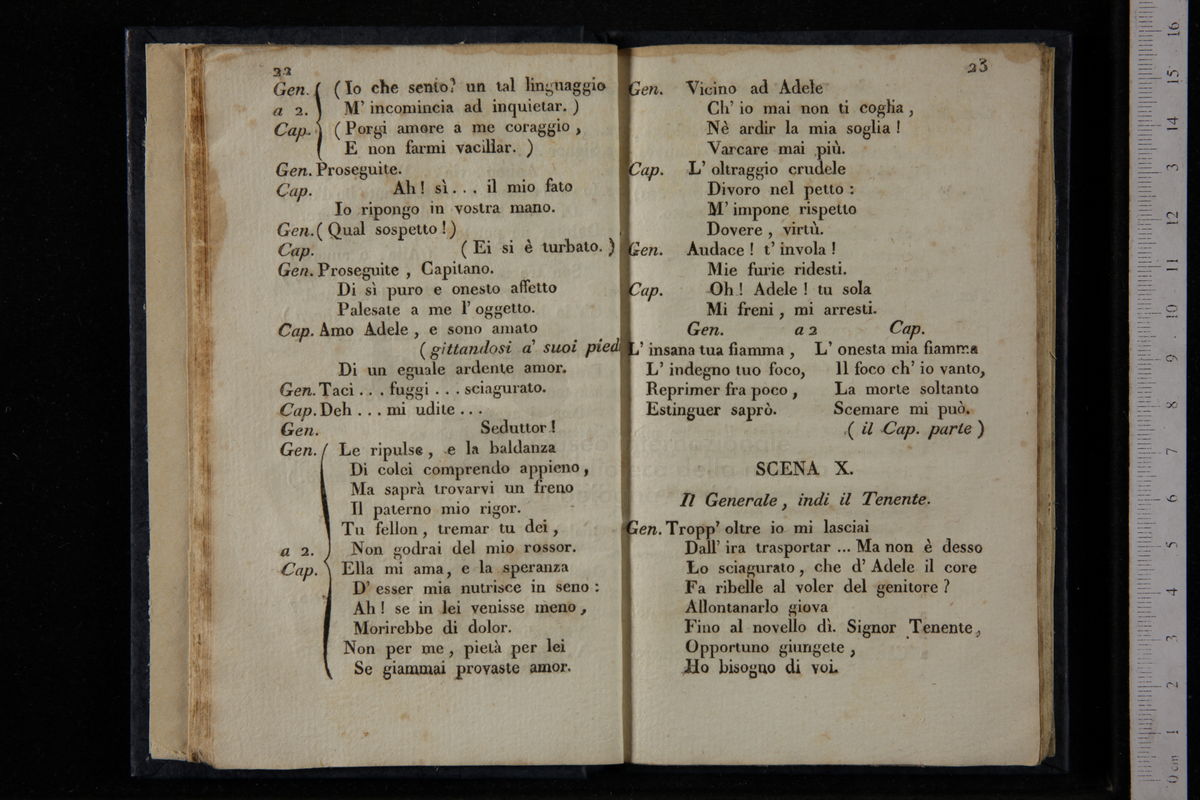 22
Gen. (Io che sento? un tal linguaggio
a 2. M' incomincia ad inquietar. )
Cap. (Porgi amore a me coraggio ,
E non farmi vacillar. )
Gen. Proseguite.
Cap. Ah! sì... il mio fato
Io ripongo in vostra mano.
Gen. ( Qual sospetto ! )
Cap. ( Ei si è turbato. )
Gen. Proseguite , Capitano.
Di sì puro e onesto affetto
Palesate a me l' oggetto.
Cap. Amo Adele , e sono amato
(gittandosi a' suoi pied
Di un eguale ardente amor.
Gen. Taci... fuggi... sciagurato.
Cap. Deh... mi udite...
Gen. Seduttor !
Gen. Le ripulse , e la baldanza
Di colei comprendo appieno ,
Ma saprà trovarvi un freno
Il paterno mio rigor.
Tu fellon , tremar tu dei ,
a 2. Non godrai del mio rossor.
Cap. Ella mi ama, e la speranza
D' esser mia nutrisce in seno :
Ah ! se in lei venisse meno ,
Morirebbe di dolor.
Non per me , pietà per lei
Se giammai provaste amor.
23
Gen. Vicino ad Adele
Ch' io mai non ti coglia ,
Nè ardir la mia soglia !
Varcare mai più.
Cap. L' oltraggio crudele
Divoro nel petto :
M' impone rispetto
Dovere , virtù.
Gen. Audace ! t' invola !
Mie furie ridesti.
Cap. Oh ! Adele ! tu sola
Mi freni , mi arresti.
Gen. a 2 Cap.
L' insana tua fiamma , L' onesta mia fiamma
L' indegno tuo foco, Il foco ch' io vanto,
Reprimer fra poco , La morte soltanto
Estinguer saprò. Scemare mi può.
( il Cap. parte )
SCENA X.
Il Generale, indi il Tenente.
Gen. Tropp' oltre io mi lasciai
Dall' ira trasportar ... Ma non è desso
Lo sciagurato , che d' Adele il core
Fa ribelle al voler del genitore ?
Allontanarlo giova
Fino al novello dì. Signor Tenente,
Opportuno giungete ,
Ho bisogno di voi.